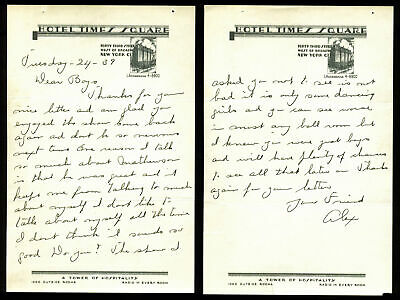 HOTEL TIMES SQUARE
FORTY THIRD STREET
WEST OF BROADWAY
NEW YORK CITY
LACKAWANNA 4-6900
Tuesday-24-39
Dear Boys
Thanks for your
nice letter and am glad you
enjoyed the show come back
again and dont be so nervous
next time One reason I talk
so much about Mathewson
is that he was great and it
keeps me from talking to much
about myself I dont like to
talk about myself all the time
I dont think it sounds so
good Do you? The show I
A TOWER OF HOSPITALITY
1000 OUTSIDE ROOMS
RADIO IN EVERY ROOM
HOTEL TIMES SQUARE
FORTY THIRD STREET
WEST OF BROADWAY
NEW YORK CITY
LACKAWANNA 4-6900
asked you not to see is not
bad it is only some dancing
girls and you can see worse
in most any ball room but
I knew you were just boys
and will have plenty of chances
to see all that later on Thanks
again for your letter
Your Friend
Alex
A TOWER OF HOSPITALITY
1000 OUTSIDE ROOMS
RADIO IN EVERY ROOM